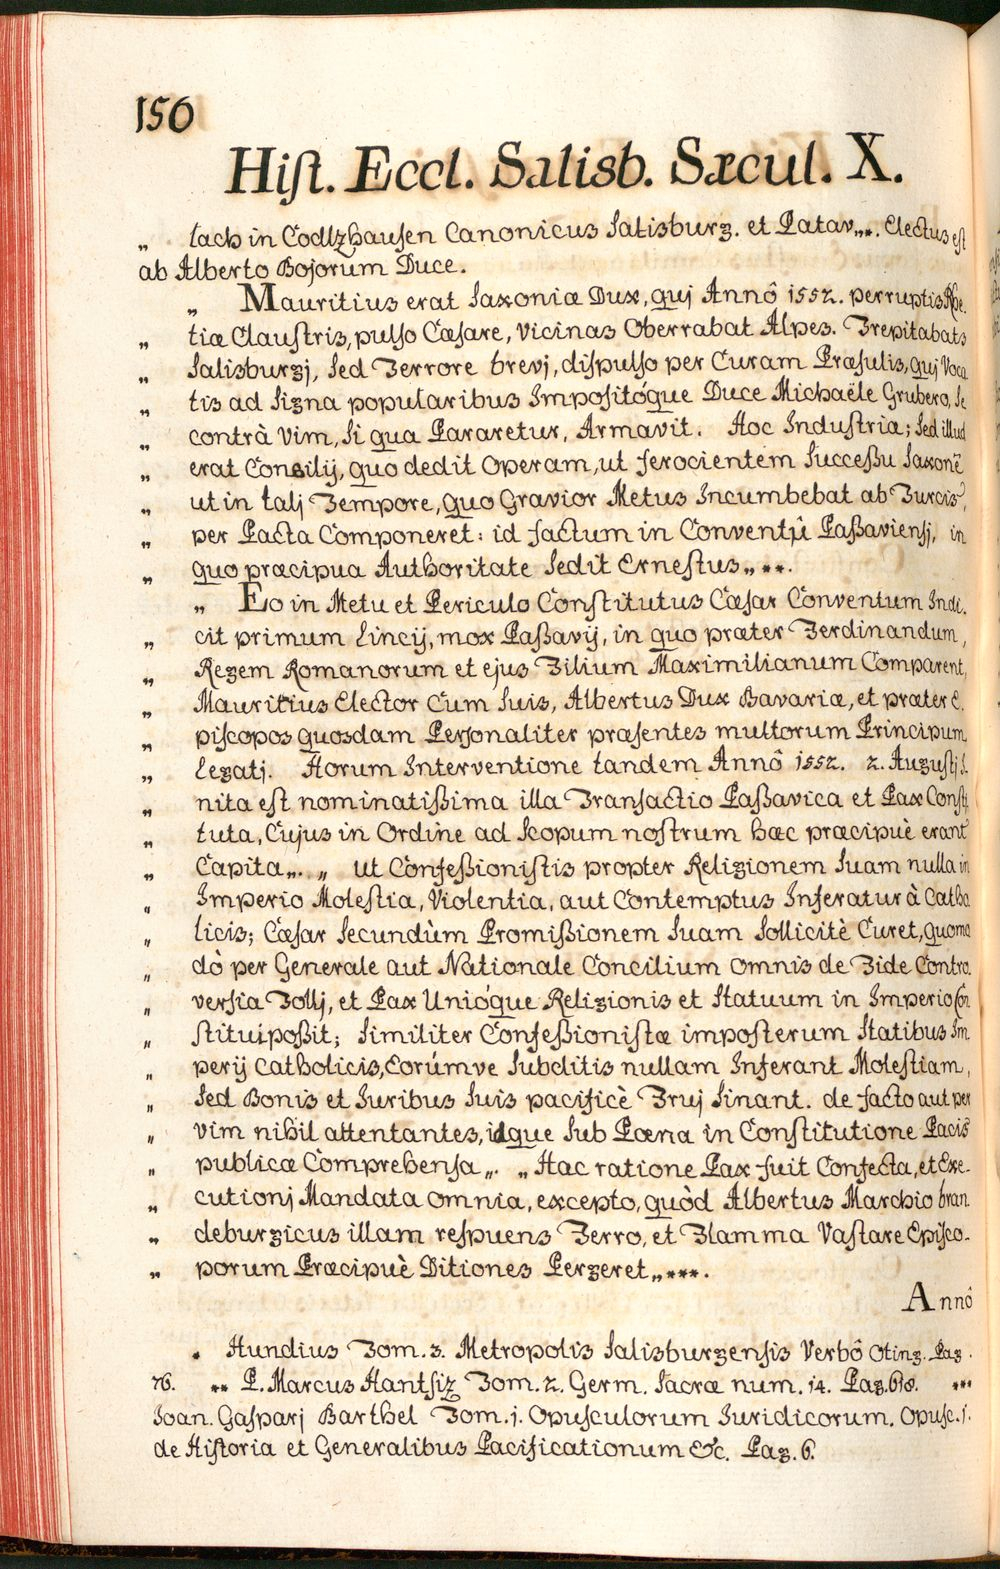 156
Hist. Eccl. Salisb. Sæcul. X.
„ lach in Codlzhausen Canonicus Salisburg. et Patav„*. Electus est
ab Alberto Bojorum Duce.
„ Mauritius erat Saxoniæ Dux, quj Annô 1552. perruptis Rhe.
„ tiæ Claustris, pulso Cæsare, Vicinas Oberrabat Alpes. Trepitabats
„ Salisburgj, Sed Terrore brevj, dispulso per Curam Præsulis, quj Voca
„ tis ad Signa popularibus Impositóque Duce Michaële Grubero, Se
„ contrà Vim, Si qua Pararetur, Armavit. Hoc Industria; Sed illud
„ erat Consilij, quo dedit Operam, ut ferocientem Successu Saxonē
„ ut in talj Tempore, quo Gravior Metus Incumbebat ab Turcis,
„ per Pacta Componeret: id factum in Conventû Passaviensj, in
„ quo præcipua Authoritate Sedit Ernestus„**.
„ Eo in Metu et Periculo Constitutus Cæsar Conventum Indi.
„ cit primum Lincij, mox Passavij, in quo præter Ferdinandum,
„ Regem Romanorum et ejus Filium Maximilianum Comparent,
„ Mauritius Elector Cum Suis, Albertus Dux Bavariæ, et præter E.
„ piscopos quosdam Personaliter præsentes multorum Principum
„ Legatj. Horum Interventione tandem Annô 1552. 2. Augustj I.
„ nita est nominatissima illa Transactio Passavica et Pax Consti
„ tuta, Cujus in Ordine ad Scopum nostrum hæc præcipuè erant
„ Capita„. „ ut Confessionistis propter Religionem Suam nulla in
„ Imperio Molestia, Violentia, aut Contemptus Inferatur à Catho
„ licis; Cæsar Secundùm Promissionem Suam Sollicitè Curet, quomo
„ dò per Generale aut Nationale Concilium omnis de Fide Contro.
„ versia Tollj, et Pax Unióque Religionis et Statuum in Imperio Con
„ stitui possit; Similiter Confessionistæ imposterum Statibus Im
„ perij Catholicis, Eorúmve Subditis nullam Inferant Molestiam,
„ Sed Bonis et Juribus Suis pacificè Fruj Sinant. de facto aut per
„ vim nihil attentantes, idque Sub Pœna in Constitutione Pacis
„ publicæ Comprehensa„. „Hac ratione Pax fuit Confecta, et Exe-
„ cutionj Mandata omnia, excepto, quòd Albertus Marchio bran
„ deburgicus illam respuens Ferro, et Flamma Vastare Episco-
„ porum Præcipuè Ditiones Pergeret„***.
Annô
* Hundius Tom. 3. Metropolis Salisburgensis Verbô Oting. Pag.
76. ** P. Marcus Hantsiz Tom. 2. Germ. Sacræ num. 14. Pag. 618. ***
Joan. Gasparj Barthel Tom. j. Opusculorum Juridicorum. Opusc. j.
de Historia et Generalibus Pacificationum &c. Pag. 6.